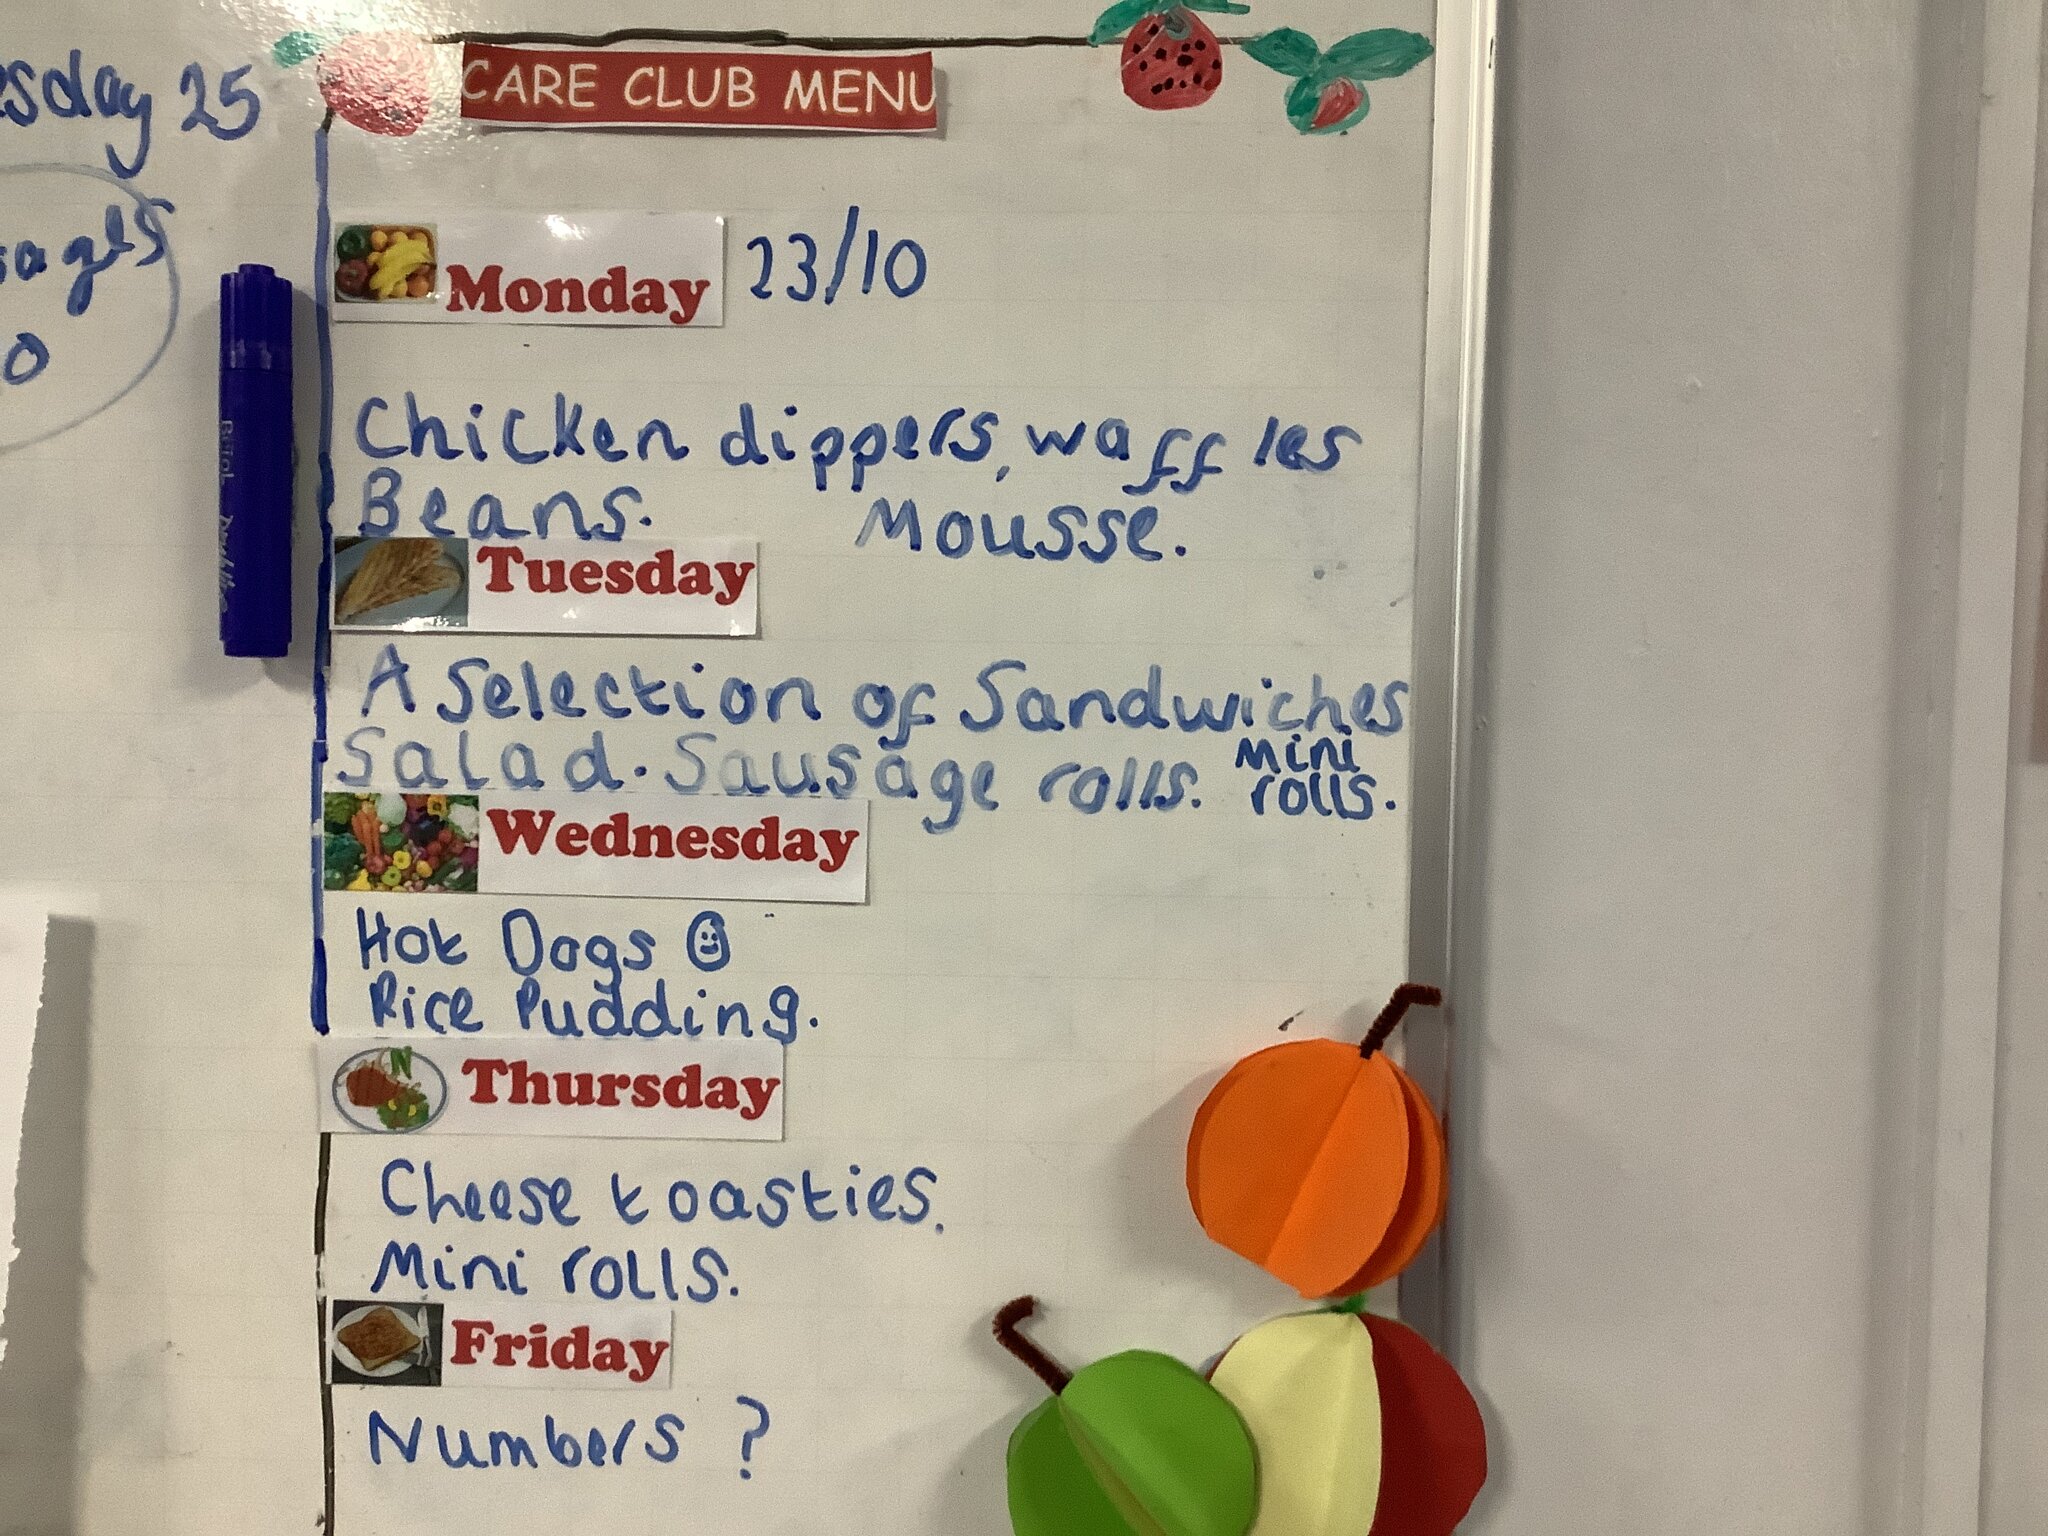 CARE CLUB MENU
25
Monday 23/10
Chicken dippers, waffles
Beans. Mousse.
Tuesday
A Selection of Sandwiches
Salad. Sausage rolls. Mini
rolls.
Wednesday
Hot Dogs
Rice Pudding.
Thursday
Cheese toasties.
Mini rolls.
Friday
Numbers ?